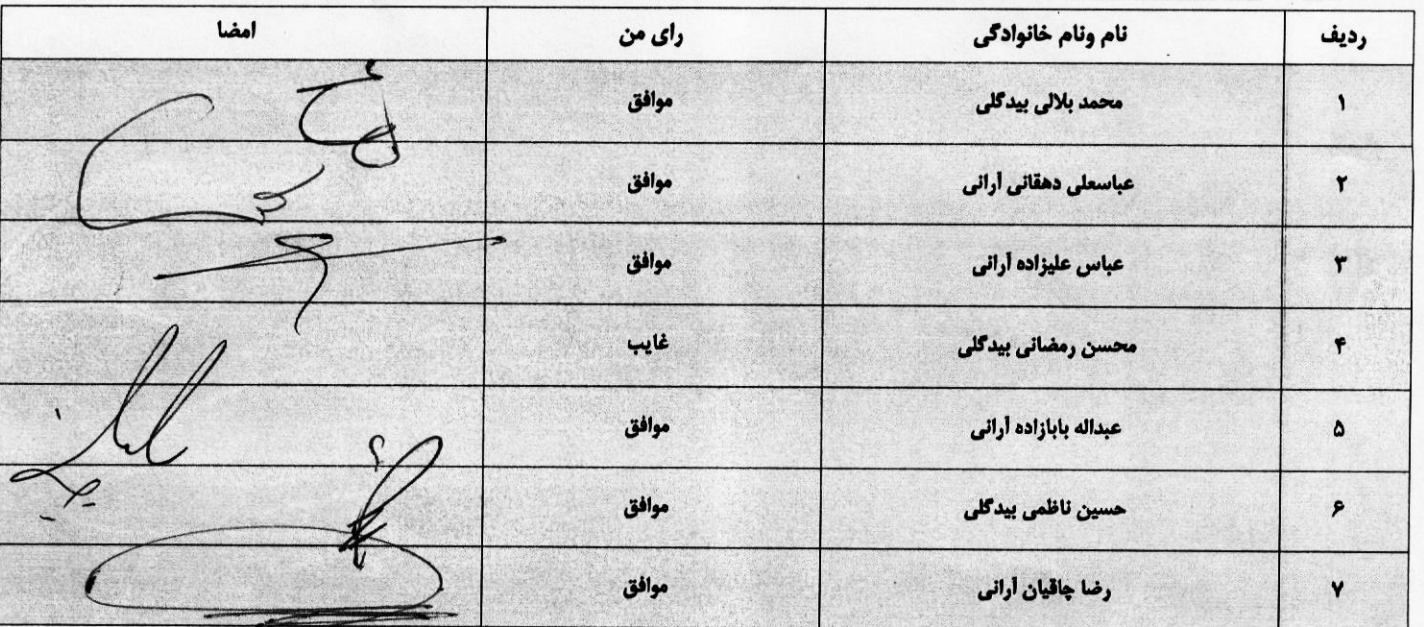 ردیف نام ونام خانوادگی رای من امضا
۱ محمد بلالی بیدگلی موافق
۲ عباسعلی دهقانی آرانی موافق
۳ عباس علیزاده آرانی موافق
۴ محسن رمضانی بیدگلی غایب
۵ عبداله بابازاده آرانی موافق
۶ حسین ناظمی بیدگلی موافق
۷ رضا چاقیان آرانی موافق